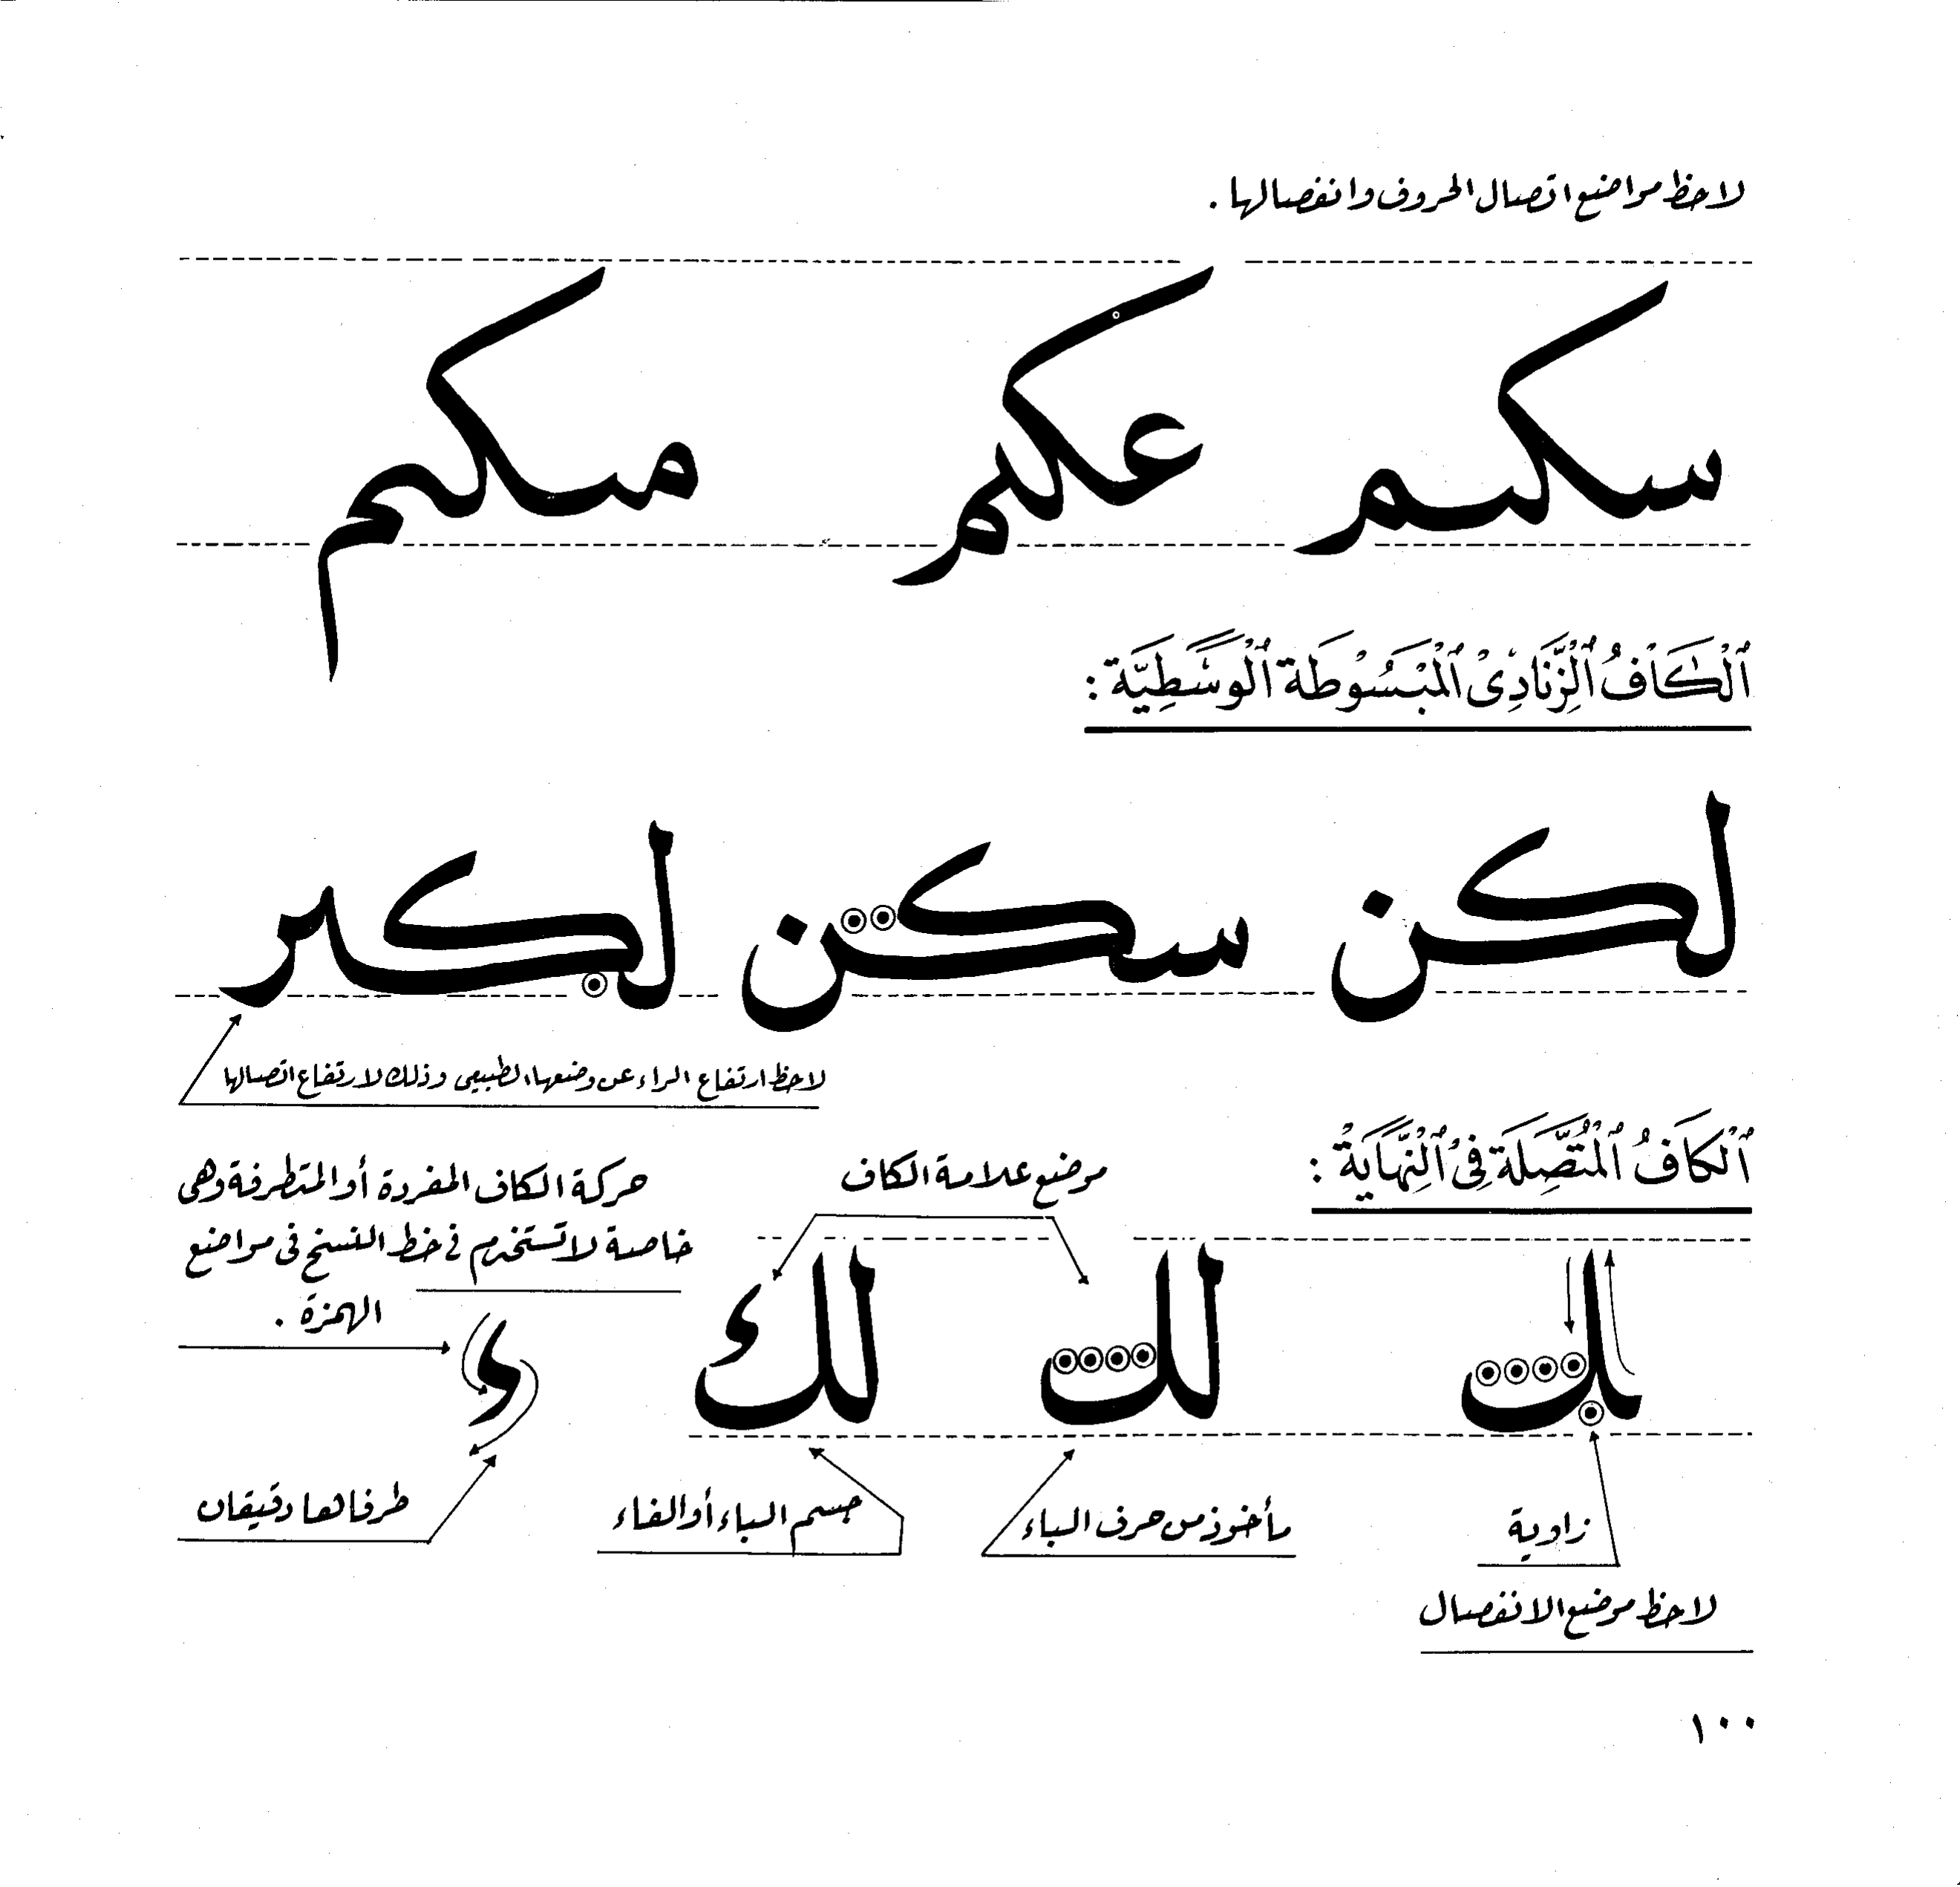 لاحظ مواضع اتصال الحروف وانفصالها .
سكم عكم مكم
ٱلْكَافُ ٱلزِّنَادِىْ ٱلْمَبْسُوْطَة ٱلْوَسَطِيَّة :
لكن سكن لكبر
لاحظ ارتفاع الراء عن وضعها الطبيعى وذلك لارتفاع اتصالها
ٱلْكَافُ ٱلْمُتَّصِلَة فِىْ ٱلنِّهَايَةْ :
موضع علامة الكاف
حركة الكاف المفردة أو المتطرفة وهى
خاصة لا تستخدم فى خط النسخ فى مواضع
الهمزة .
لك لك
زاوية
مأخوذ من حرف الباء
جسم الباء أو الفاء
طرفاها دقيقان
لاحظ موضع الانفصال
١٠٠